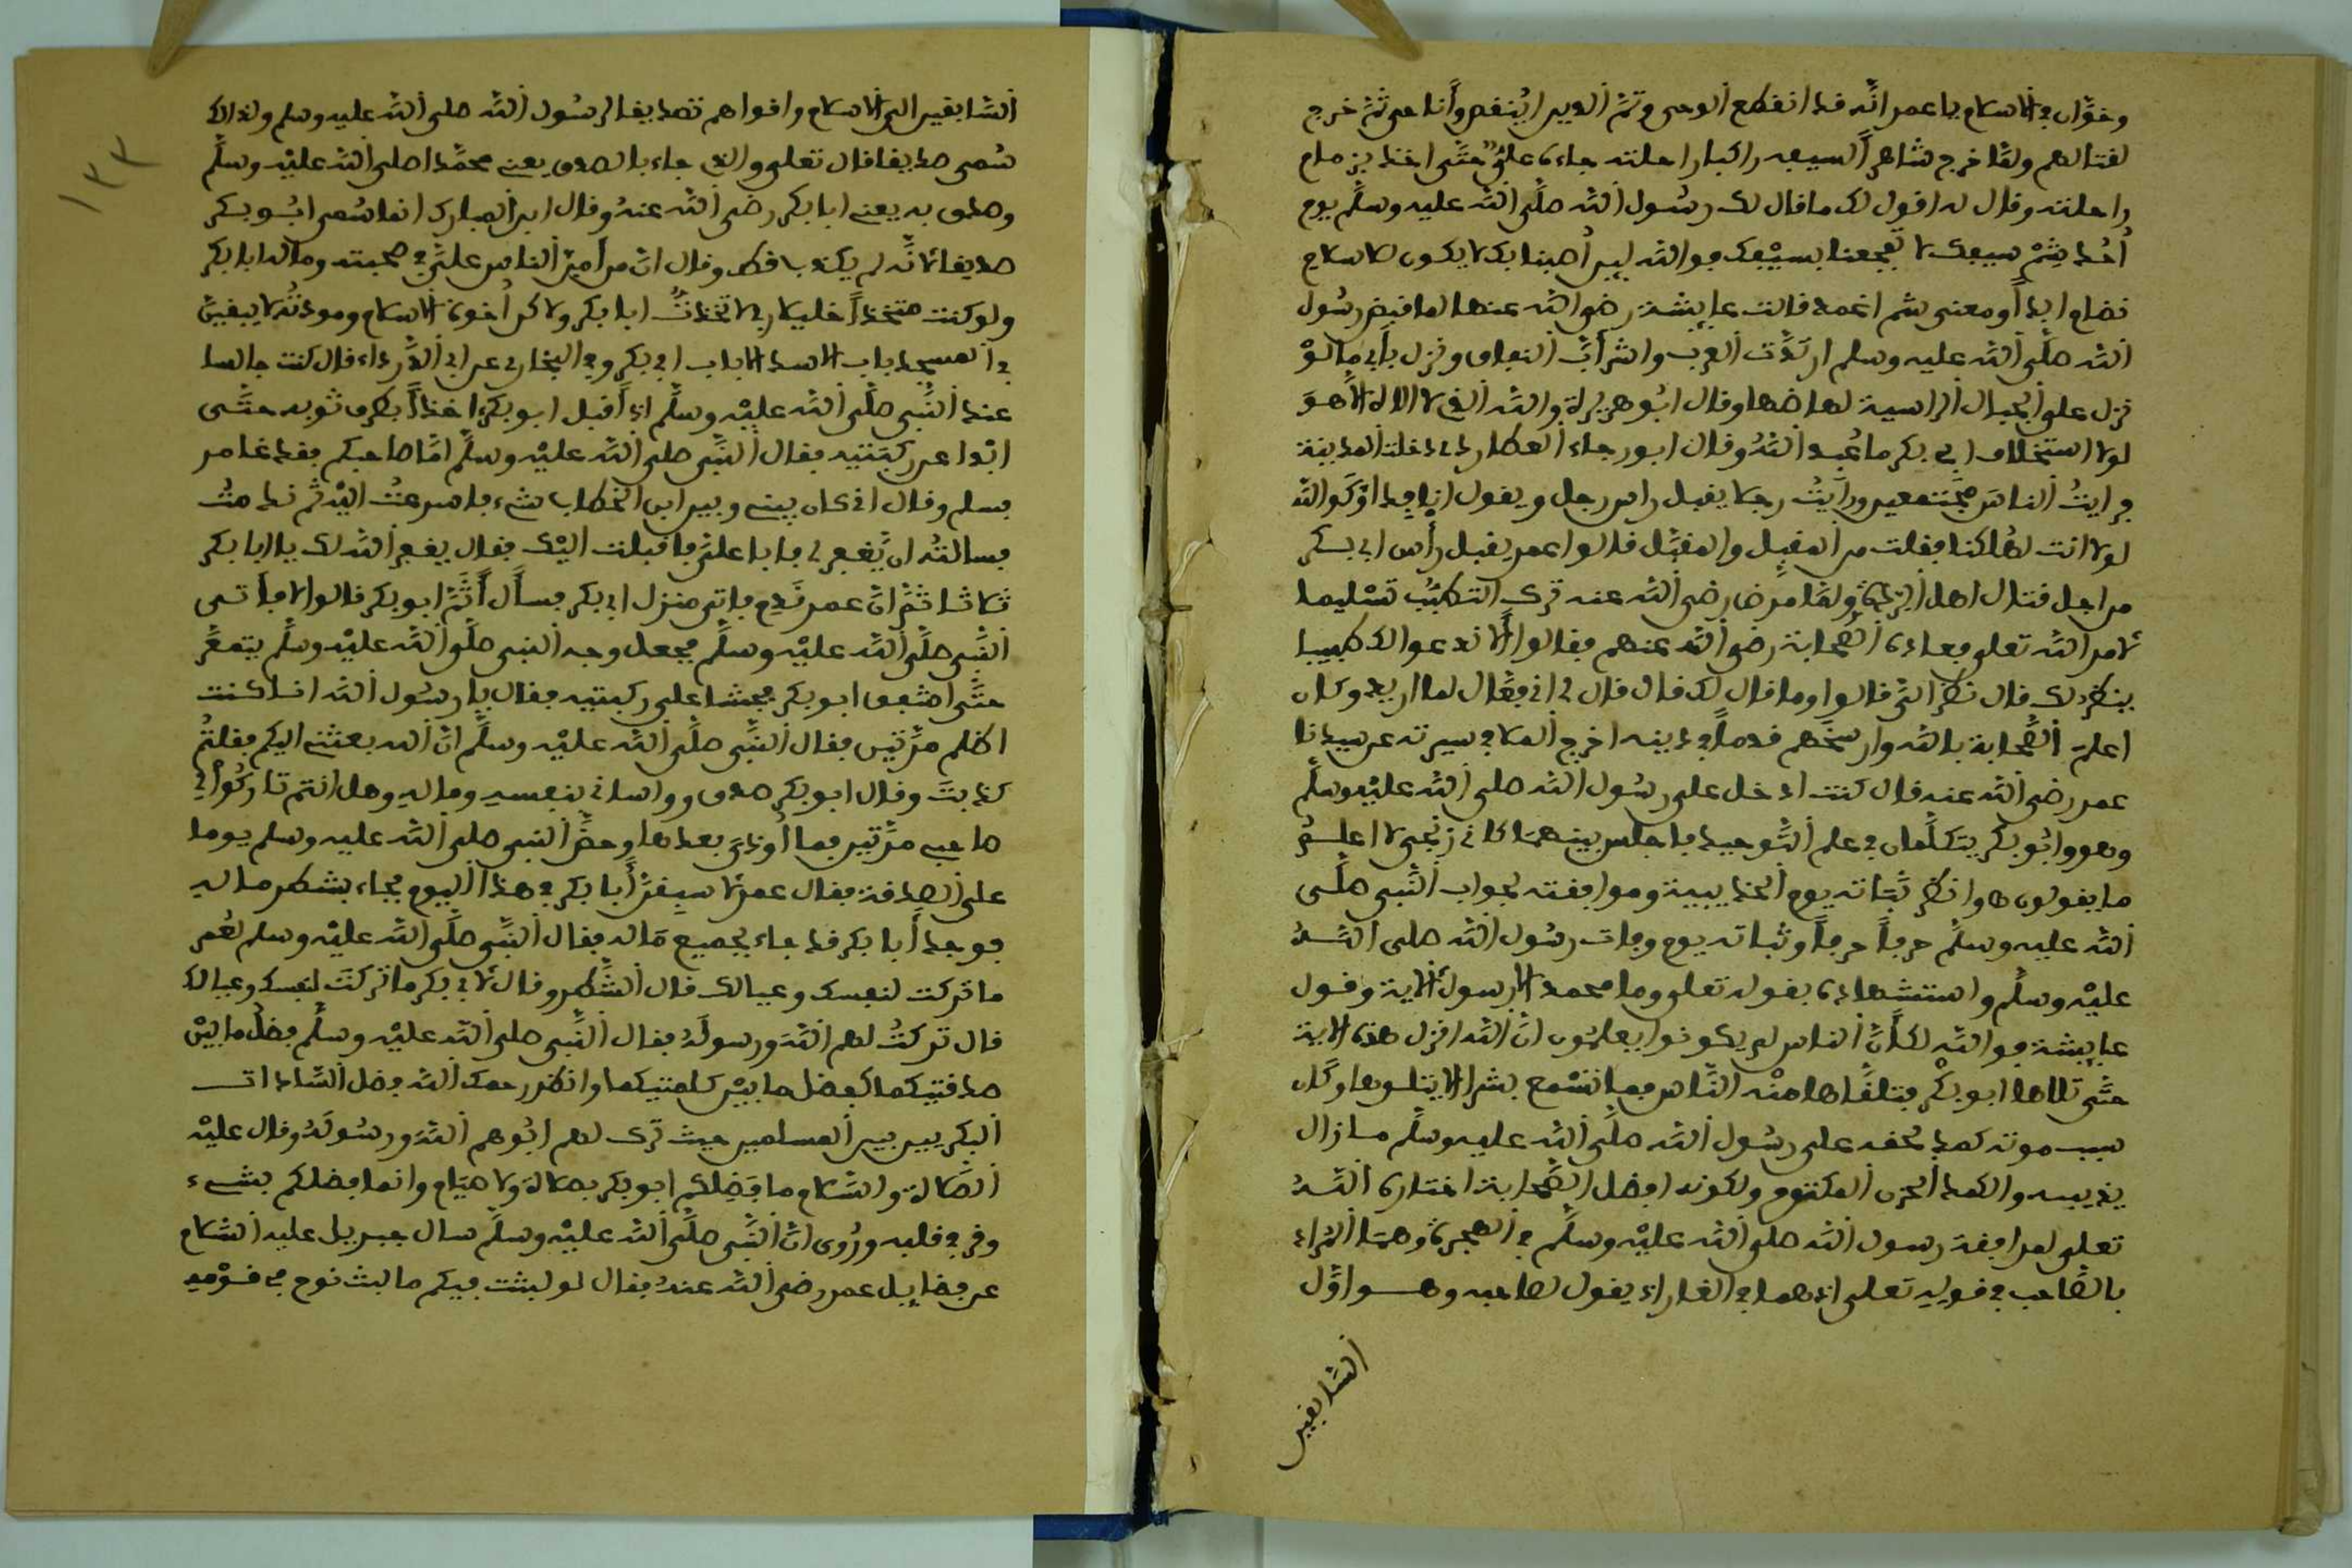 وخوّار في الاسلام يا عمر انّه قد انقطع الوحي وتمّ الدين اينقص وأنا حي ثمّ خرج
لقتالهم ولمّا خرج شاهرا السيف راكبا راحلته جاءه عليّ حتّى اخذ بزمام
راحلته وقال له اقول لك ما قال لك رسُول الله صلّى الله عليه وسلّم يوم
أُحُد شِمْ سيفك لا تفجعنا بسيْفك فوالله لين أُصبنا بك لا يكون للاسلام
نظام ابداً ومعنى شم اغمد قالت عايشة رضي الله عنها لما قبض رسُول
الله صلّى الله عليه وسلم ارتدّت العرب واشرأبّ النفاق ونزل بأبي ما لوْ
نزل على الجبال الراسية لهاضها وقال ابُو هريرة والله الذي لا اله الّا هوَ
لولا استخلاف ابي بكر ما عُبد اللهُ وقال ابو رجاء العطاردي دخلت المدينة
فرايتُ الناسَ مجْتمعين ورأيتُ رجلا يقبل راس رجل ويقول انا فداؤك والله
لولا انت لهلكنا فقلت من المقبِل والمقبَّل قالوا عمر يقبل رأس ابي بكر
من اجل قتال اهل الردّة ولمّا مرض رضي الله عنه ترك التطبُّب تسْليما
لامر الله تعلى فعاده الصّحابة رضي الله عنهم فقالوا ألا ندعوا لك طبيبا
ينظرُ لك قال نظر اليّ قالوا وما قال لك قال قال لي اني فعّال لما اريد وكان
اعلمَ الصّحابة بالله وارسخهم قدماً في دينه اخرج الملا في سيرته عن سيدنا
عمر رضي الله عنه قال كنت ادخل على رسُول الله صلى الله عليْه وسلّم
وهو وابُو بكر يتكلّمان في علم التّوحيد فاجلس بينهمَا كاني زنجي لا اعلمُ
ما يقولون وانظر ثباته يوم الحديبية وموافقته لجواب النّبي صلّى
الله عليه وسلّم حرفاً حرفاً وثباته يوم وفات رسُول الله صلى اللهُ
عليْه وسلّم واستشهاده بقوله تعلى وما محمد الا رسول الاية وقول
عايشة فوالله لكأنّ الناس لم يكونوا يعلمُون انّ الله انزل هذه الاية
حتّى تلاها ابو بكْر فتلقّاها منْه النّاس فما نسْمع بشرا الا يتلوها وكان
سبب موته كمد لحقه على رسُول الله صلّى الله عليه وسلّم ما زال
يذيبه والكمد الحزن المكتوم ولكونه افضل الصّحابة اختاره اللهُ
تعلى لمرافقة رسول الله صلى الله عليْه وسلّم في الهجرة وهمَا المراد
بالصّاحب في قوله تعلى اذ هما في الغار اذ يقول لصاحبه وهو اوّل
السّابقين
١٣٣
السّابقين الى الاسلام واقواهم تصديقا لرسُول الله صلى الله عليه وسلم ولذالك
سُمي صديقا قال تعلى والذي جاء بالصدق يعني محمّدا صلى الله عليْه وسلّم
وصدق به يعني ابا بكر رضي الله عنهُ وقال ابن المبارك انما سُمي ابُو بكر
صديقا لانّه لم يكذب قط وقال انّ من أمنّ الناس عليّ في صحبته وماله ابا بكر
ولو كنت متخذاً خليلا ربي لاتخذتُ ابا بكر ولاكن أُخوة الاسلام ومودتُه لا يبقينّ
في المسجد باب الا سد الا باب ابي بكر وفي البخاري عن ابي الدّرداء قال كنت جالسا
عند النّبي صلّى الله عليْه وسلّم اذ أقبل ابو بكر اخذاً بطرف ثوبه حتّى
ابْدا عن ركبَتيه فقال النّبي صلى الله عليْه وسلّم امّا صاحبكم فقد غامر
فسلم وقال اني كان بيني وبين ابن الخطاب شيء فاسرعتُ اليْه ثمّ ندمتُ
فسالتهُ ان يّغفر لي فابا عليّ فاقبلت اليْك فقال يغفر الله لك يا ابا بكر
ثلاثا ثمّ انّ عمر نَدِم فاتى منزل ابي بكر فسأل أَثَمّ ابو بكر قالوا لا فأتى
النّبي صلّى الله عليْه وسلّم فجعل وجه النبي صلّى الله عليْه وسلّم يتمعَّر
حتّى اشفق ابو بكر فجثا على ركبتيه فقال يا رسُول الله انا كنت
اظلم مرّتيْن فقال النّبي صلّى الله عليْه وسلّم انّ الله بعثني اليكم فقلتُمْ
كذبتَ وقال ابو بكر صدق وواساني بنفسه وماله وهل انتم تاركُوا لي
صاحبي مرّتين فما أُوذيَ بعدها وحضّ النبي صلى الله عليه وسلم يوما
على الصدقة فقال عمر لاسبقنّ أبا بكر في هذا اليوم فجاء بشطر ماله
فوجد أبا بكر قد جاء بجميع مَاله فقال النّبي صلّى الله عليْه وسلم لعُمر
ما تركت لنفسك وعيالك قال الشّطر وقال لابي بكر ما تركتَ لنفسك وعيالك
قال تركتُ لهم اللهَ ورسولَهُ فقال النّبي صلى الله عليْه وسلّم فضلُ ما بيْن
صدقتيكما كفضل ما بيْن كلمتيكما وانظر رحمك الله فضل السّادات
البكريين بين المسلمين حيث ترك لهم ابُوهم اللهَ ورسُولَهُ وقال عليْه
الصّلاة والسّلام ما فَضِلكم ابو بكر بصلاة ولا صيَام وانما فضلكم بشيء
وقر في قلبه ورُوي انّ النّبي صلّى الله عليْه وسلّم سال جبريل عليه السّلام
عن فضايل عمر رضي الله عنهُ فقال لو لبثت فيكم ما لبث نوح في قوْمه